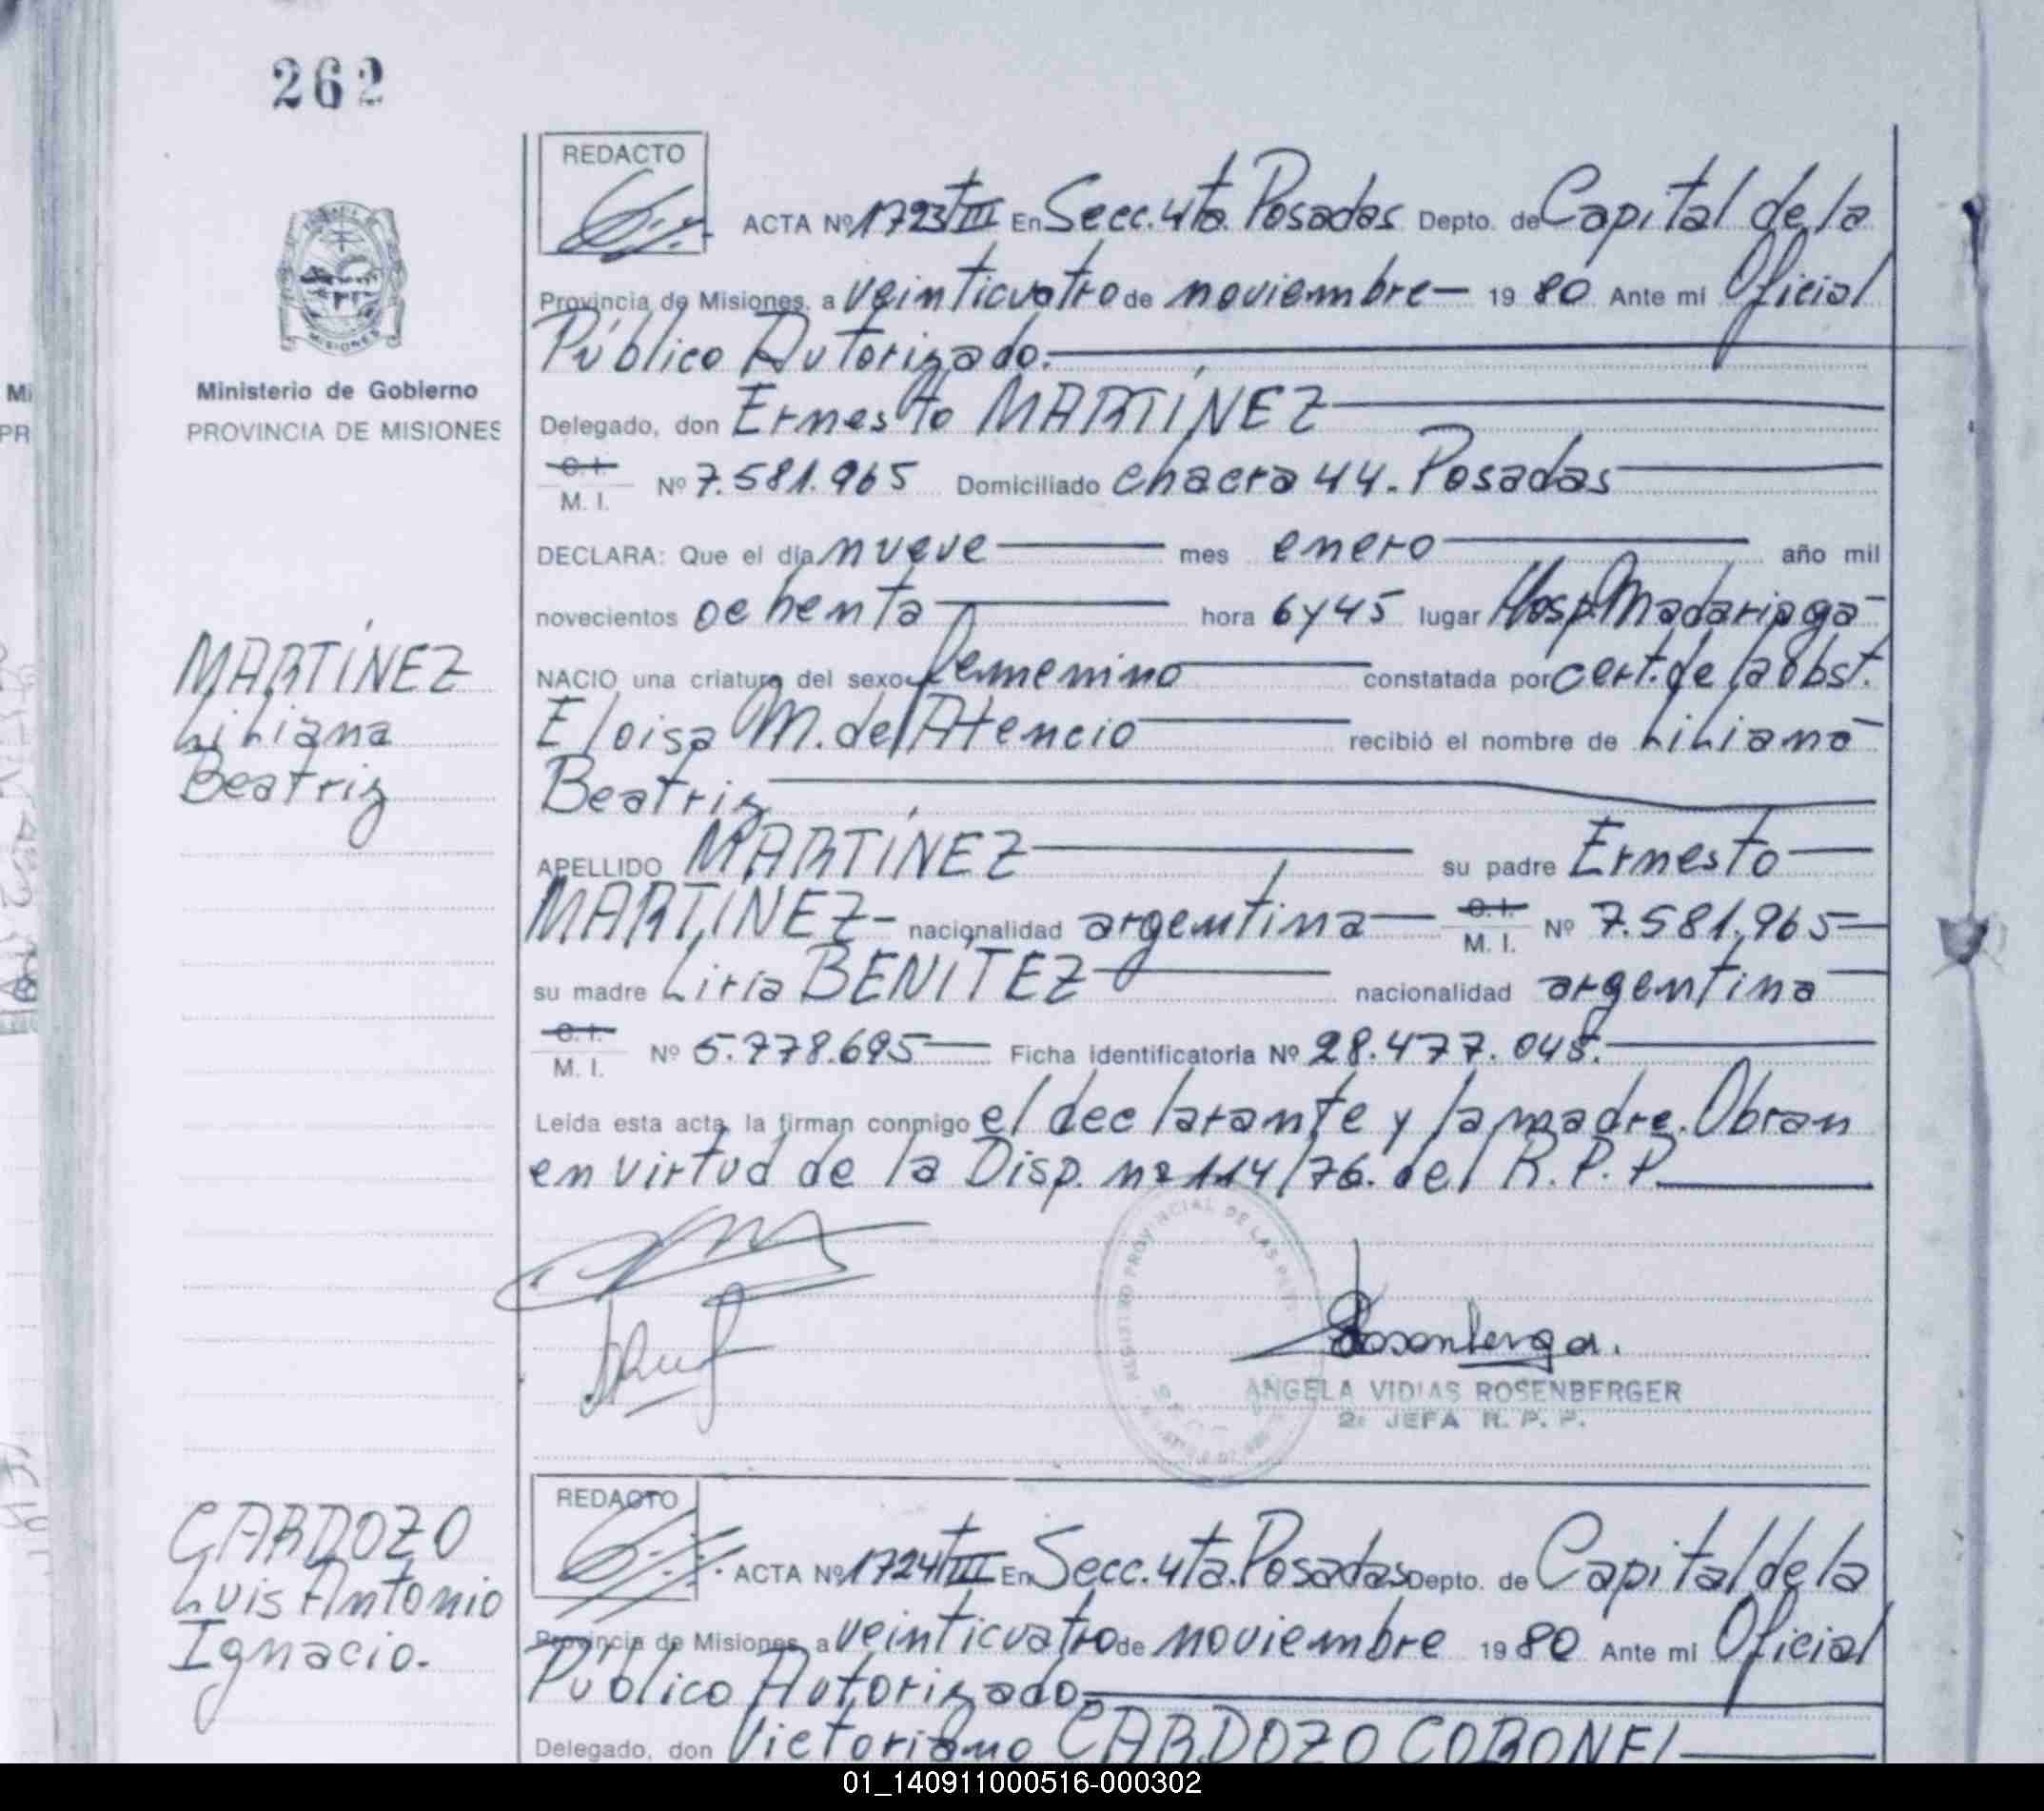 262
REDACTO
ACTA Nº 1723 TIII En Secc. 4ta. Posadas Depto. de Capital de la
Provincia de Misiones, a veinticuatro de noviembre— 19 80 Ante mi Oficial
Público Autorizado.
Ministerio de Gobierno
PROVINCIA DE MISIONES
Delegado, don Ernesto MARTÍNEZ
C. I.
M. I. Nº 7.581.965 Domiciliado chacra 44. Posadas
DECLARA: Que el día nueve mes enero año mil
novecientos ochenta hora 6 y 45 lugar Hosp. Madariaga
MARTÍNEZ
Liliana
Beatriz
NACIO una criatura del sexo femenino constatada por cert. de la obst.
Eloisa M. de Atencio recibió el nombre de Liliana
Beatriz
APELLIDO MARTÍNEZ su padre Ernesto
MARTÍNEZ- nacionalidad argentina C. I.
M. I. Nº 7.581.965
su madre Liria BENÍTEZ nacionalidad argentina
C. I.
M. I. Nº 5.778.695 Ficha identificatoria Nº 28.477.045.
Leída esta acta, la firman conmigo el declarante y la madre. Obran
en virtud de la Disp. nº 114/76. del R.P.P.
REGISTRO PROVINCIAL DE LAS
ANGELA VIDIAS ROSENBERGER
2º JEFA R. P. P.
CARDOZO
Luis Antonio
Ignacio.
REDACTO
ACTA Nº 1724 TIII En Secc. 4ta. Posadas Depto. de Capital de la
Provincia de Misiones, a veinticuatro de noviembre 19 80 Ante mi Oficial
Público Autorizado
Delegado, don Victoriano CARDOZO CORONEL
01_140911000516-000302